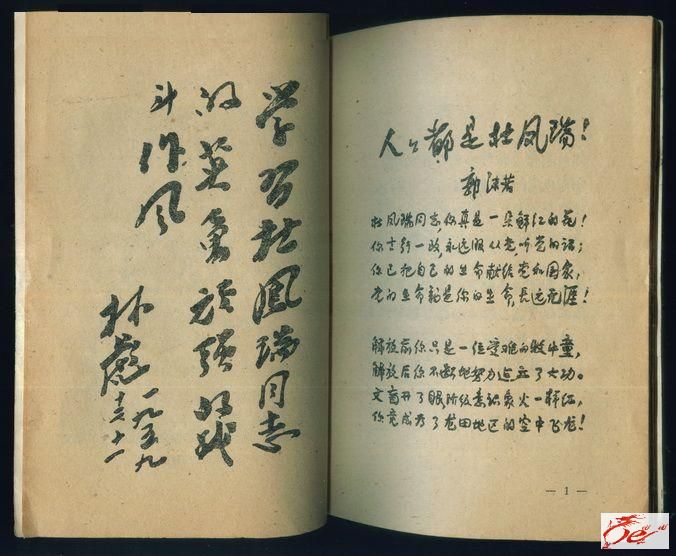 学習杜鳳瑞同志
的英勇顽强的战
斗作风
林彪
一九五九
人々都是杜凤瑞!
郭沫若
杜凤瑞同志,你真是一朵鲜红的花!
你言行一致,永远服从党,听党的话;
你已把自己的生命献给党和国家,
党的生命就是你的生命,长远无涯!
解放前你只是一位受难的牧牛童,
解放后你不断地努力建立了大功。
文盲开了眼阶级意识象火一样红,
你竟成为了龙田地区的空中飞龙!
— 1 —